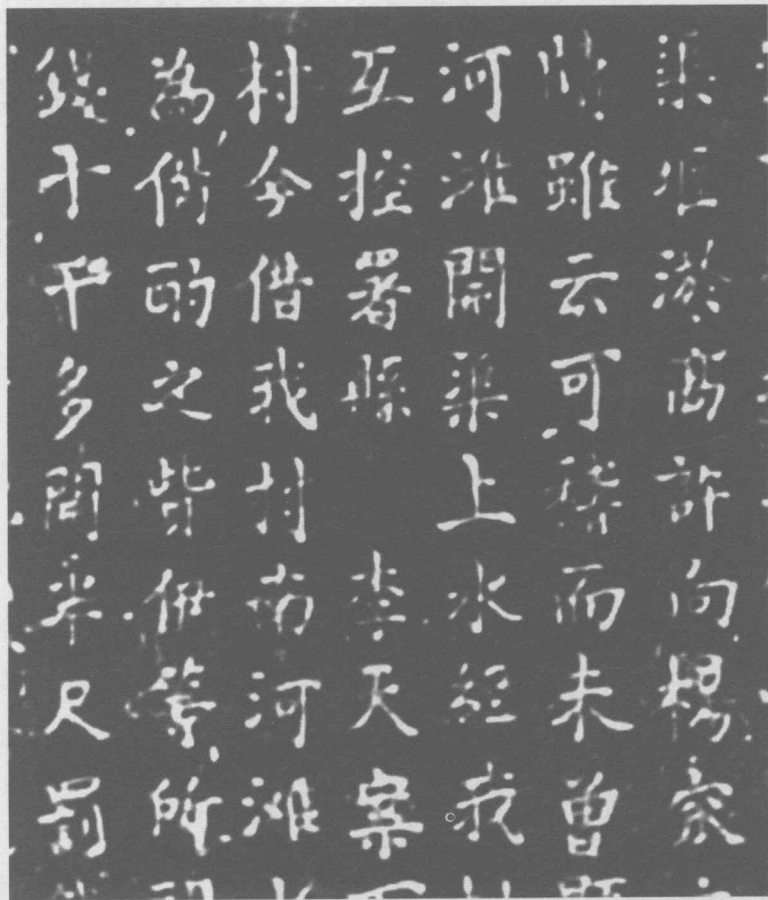 渠垣漤高許向楊家
時雖云可稽而未曾
河灘開渠上水經我
互控署縣李天案
村今借我村南河灘
為借酌之皆伊等所
錢十千多問半尺罰